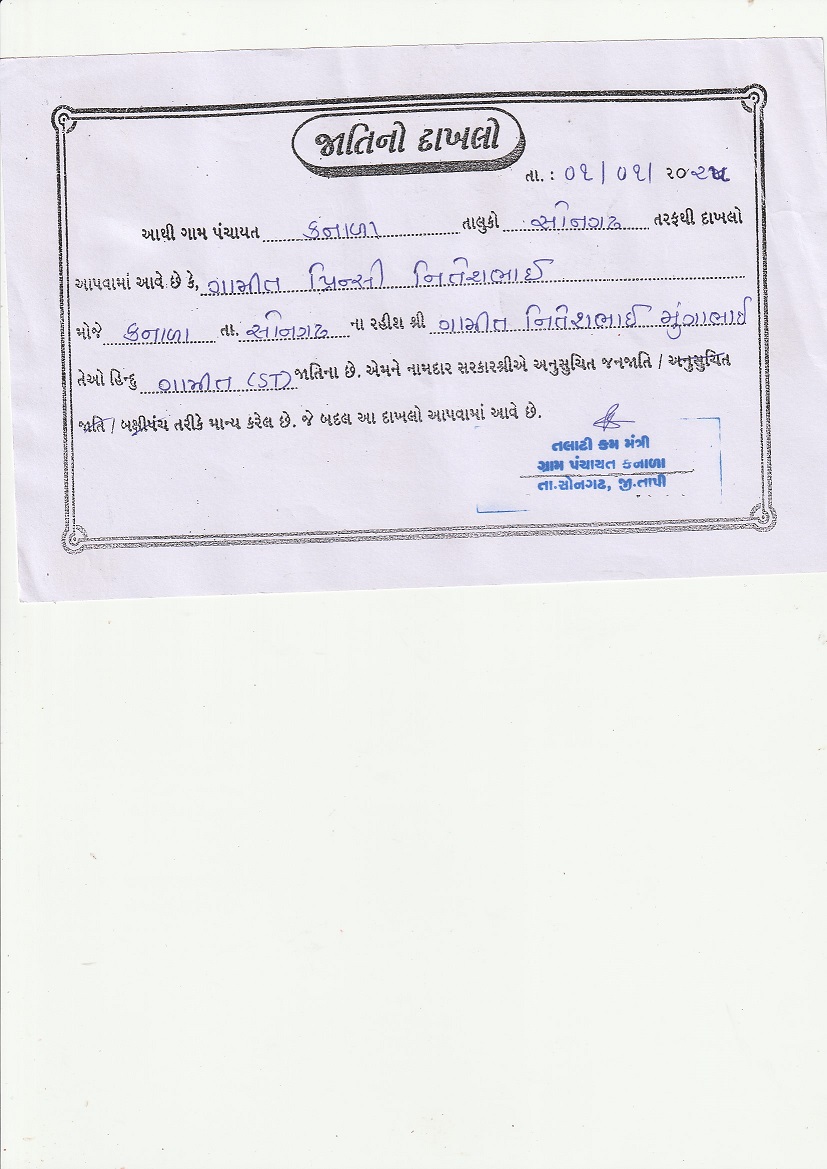 જાતિનો દાખલો
તા. : ૦૧ / ૦૧ / ૨૦૨૫
આથી ગામ પંચાયત કનાળા તાલુકો સોનગઢ તરફથી દાખલો
આપવામાં આવે છે કે, ગામીત પ્રિન્સી નિતેશભાઈ
મોજે કનાળા તા. સોનગઢ ના રહીશ શ્રી ગામીત નિતેશભાઈ મુંગાભાઈ
તેઓ હિન્દુ ગામીત (ST) જાતિના છે. એમને નામદાર સરકારશ્રીએ અનુસુચિત જનજાતિ / અનુસુચિત
જાતિ / બક્ષીપંચ તરીકે માન્ય કરેલ છે. જે બદલ આ દાખલો આપવામાં આવે છે.
તલાટી કમ મંત્રી
ગ્રામ પંચાયત કનાળા
તા.સોનગઢ, જી.તાપી